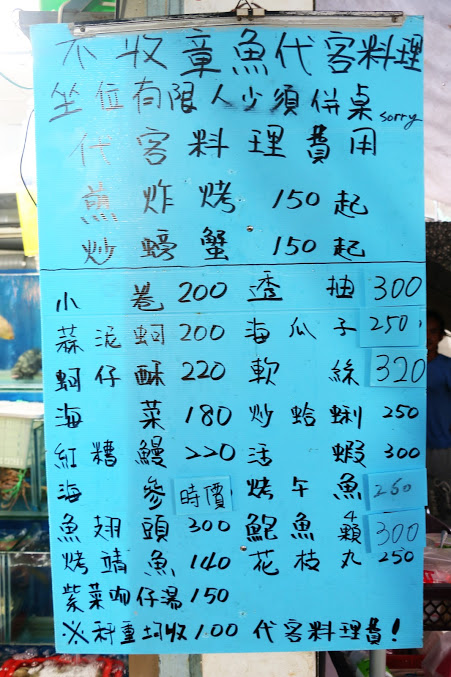 不收章魚代客料理
坐位有限人少須併桌sorry
代客料理費用
煎炸烤 150起
炒螃蟹 150起
小卷 200 透抽 300
蒜泥蚵 200 海瓜子 250
蚵仔酥 220 軟絲 320
海菜 180 炒蛤蜊 250
紅糟鰻 220 活蝦 300
海參 時價 烤午魚 260
魚翅頭 300 鮑魚4顆 300
烤鯖魚 140 花枝丸 250
紫菜吻仔湯 150
※秤重均收100代客料理費!